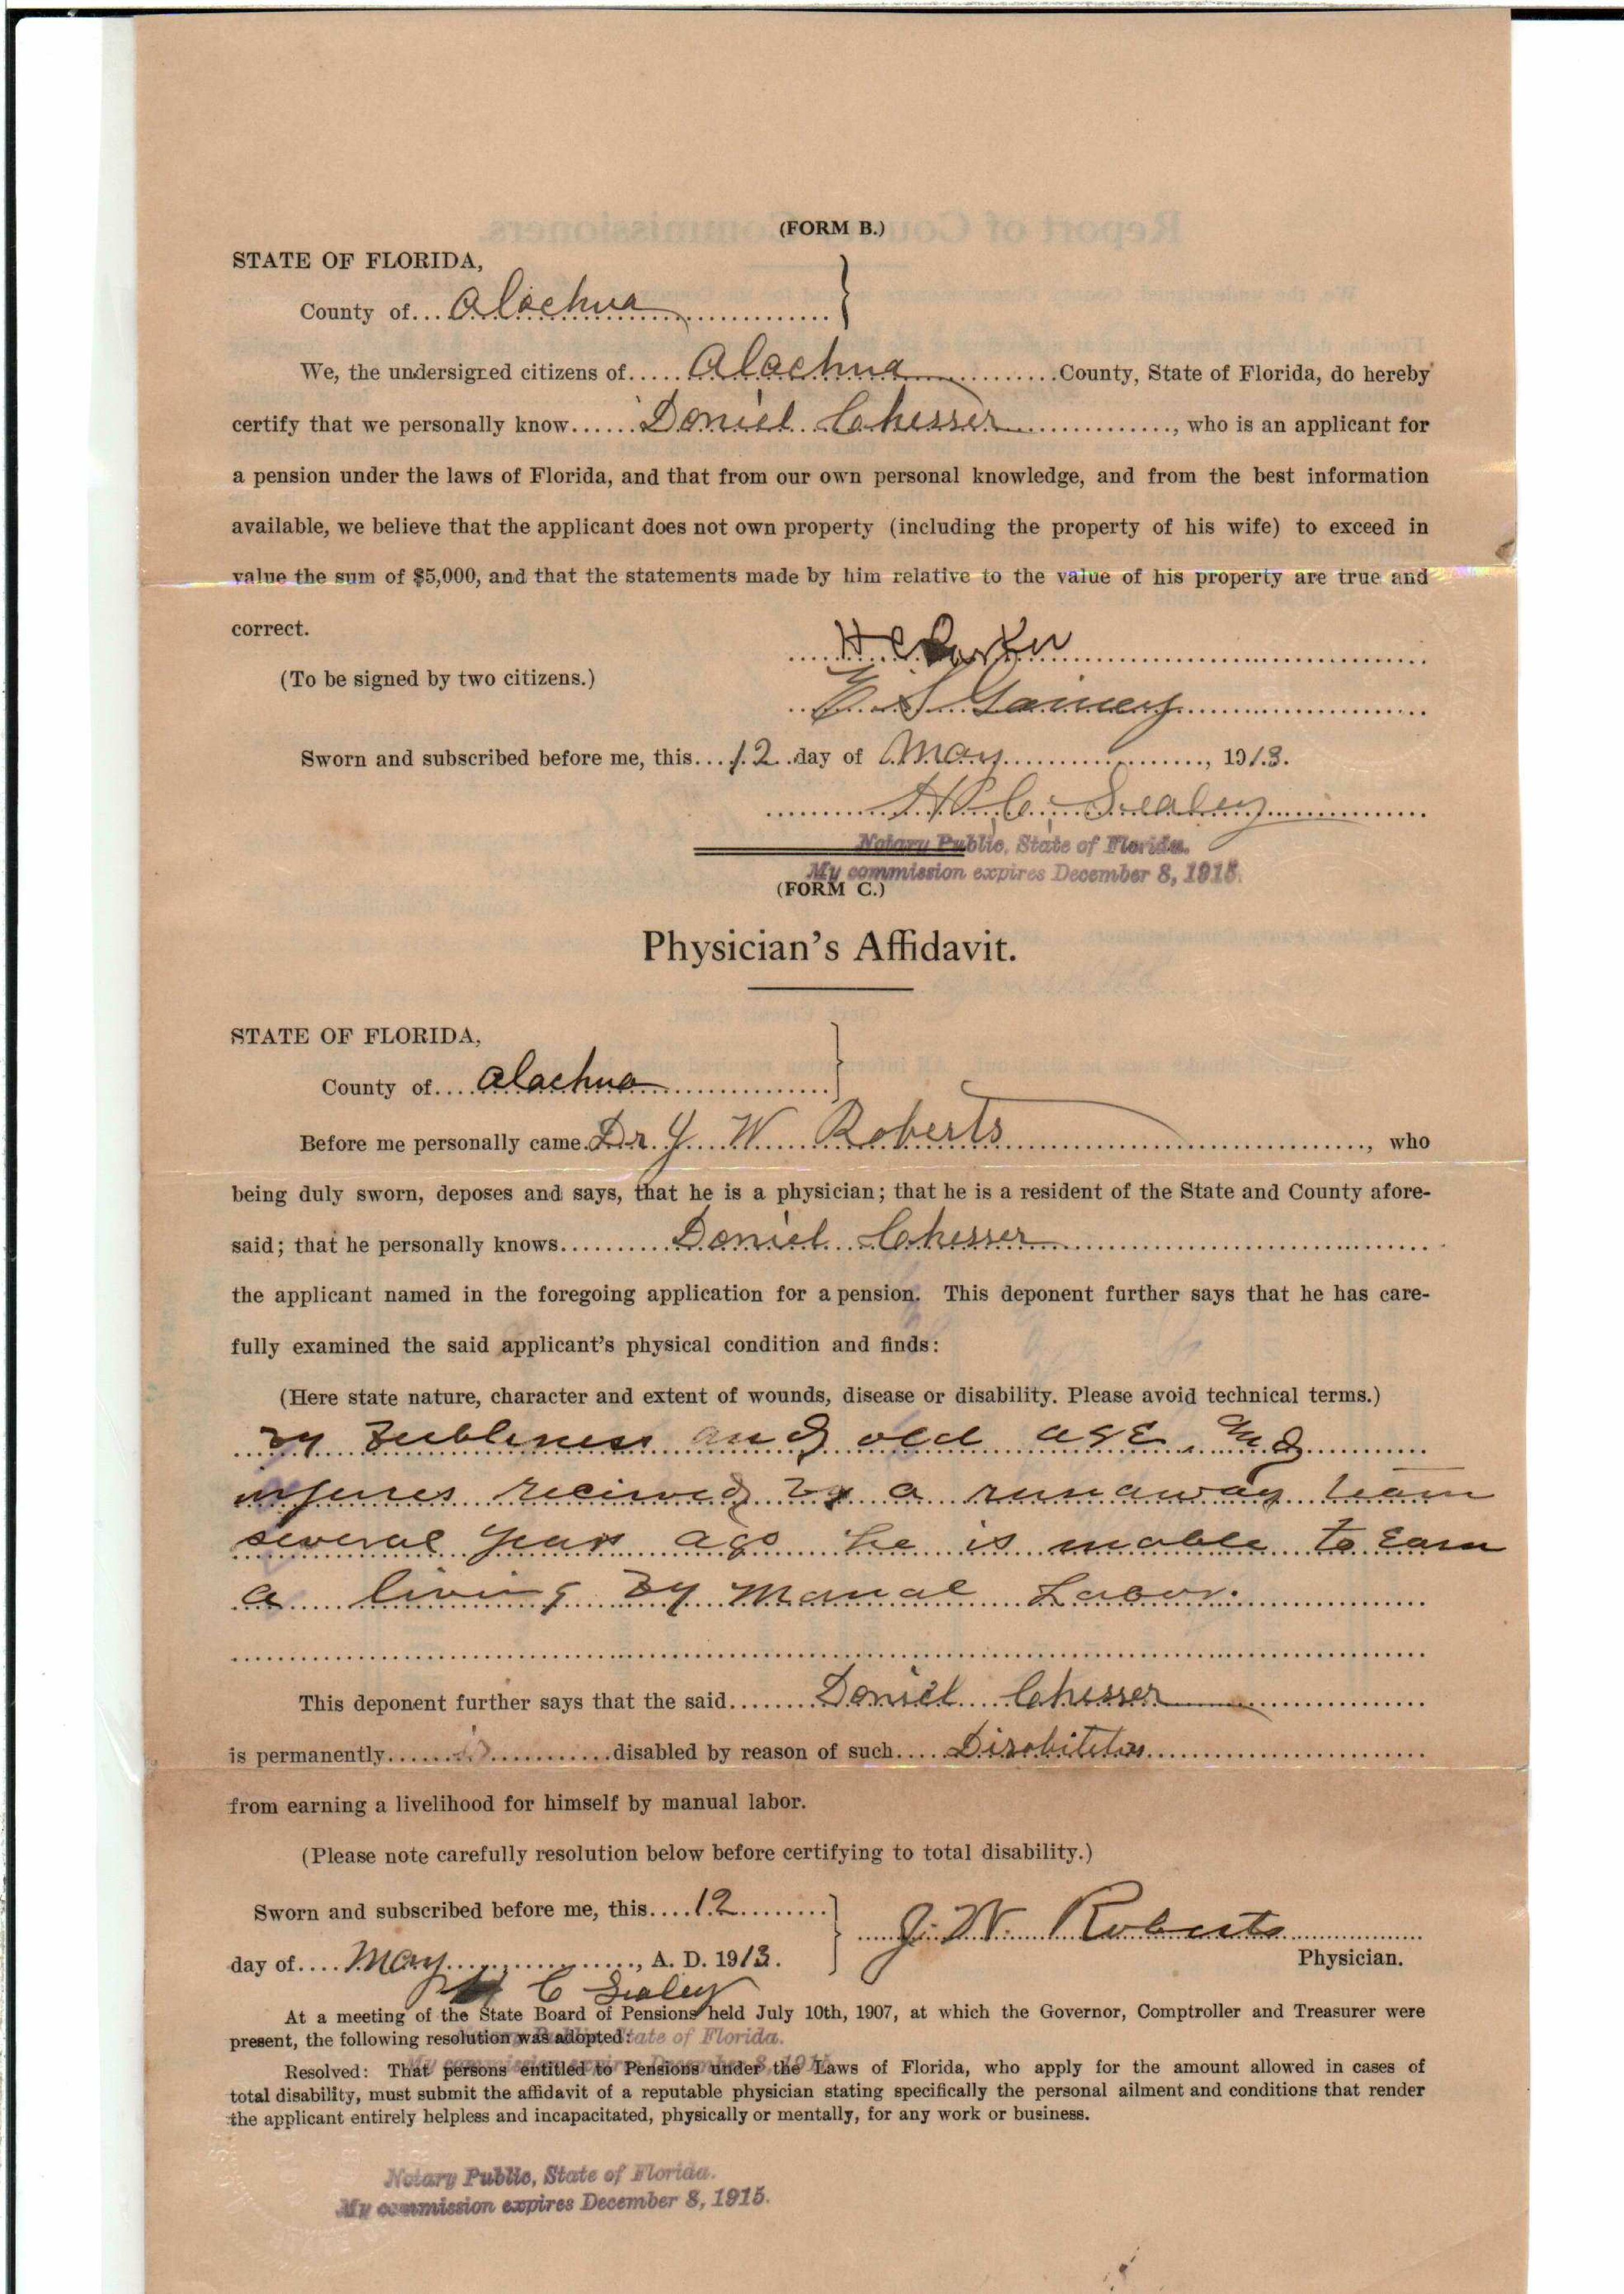 (FORM B.)
STATE OF FLORIDA,
County of Alachua
We, the undersigned citizens of Alachua County, State of Florida, do hereby
certify that we personally know Daniel Chesser, who is an applicant for
a pension under the laws of Florida, and that from our own personal knowledge, and from the best information
available, we believe that the applicant does not own property (including the property of his wife) to exceed in
value the sum of $5,000, and that the statements made by him relative to the value of his property are true and
correct.
H C Parker
(To be signed by two citizens.)
E. S. Gainey
Sworn and subscribed before me, this 12 day of May, 1913.
H. C. Sealey
Notary Public, State of Florida.
My commission expires December 8, 1915.
(FORM C.)
Physician's Affidavit.
STATE OF FLORIDA,
County of Alachua
Before me personally came Dr. J. W. Roberts, who
being duly sworn, deposes and says, that he is a physician; that he is a resident of the State and County afore-
said; that he personally knows Daniel Chesser
the applicant named in the foregoing application for a pension. This deponent further says that he has care-
fully examined the said applicant's physical condition and finds:
(Here state nature, character and extent of wounds, disease or disability. Please avoid technical terms.)
By feebleness and old age, and
injures received by a runaway team
several years ago he is unable to earn
a living by manual Labor.
This deponent further says that the said Daniel Chesser
is permanently disabled by reason of such
from earning a livelihood for himself by manual labor.
(Please note carefully resolution below before certifying to total disability.)
Sworn and subscribed before me, this 12
day of May, A. D. 1913.
J. W. Roberts
Physician.
H C Sealey
At a meeting of the State Board of Pensions held July 10th, 1907, at which the Governor, Comptroller and Treasurer were
present, the following resolution was adopted:
Notary Public, State of Florida.
My commission expires December 8, 1915
Resolved: That persons entitled to Pensions under the Laws of Florida, who apply for the amount allowed in cases of
total disability, must submit the affidavit of a reputable physician stating specifically the personal ailment and conditions that render
the applicant entirely helpless and incapacitated, physically or mentally, for any work or business.
Notary Public, State of Florida.
My commission expires December 8, 1915.